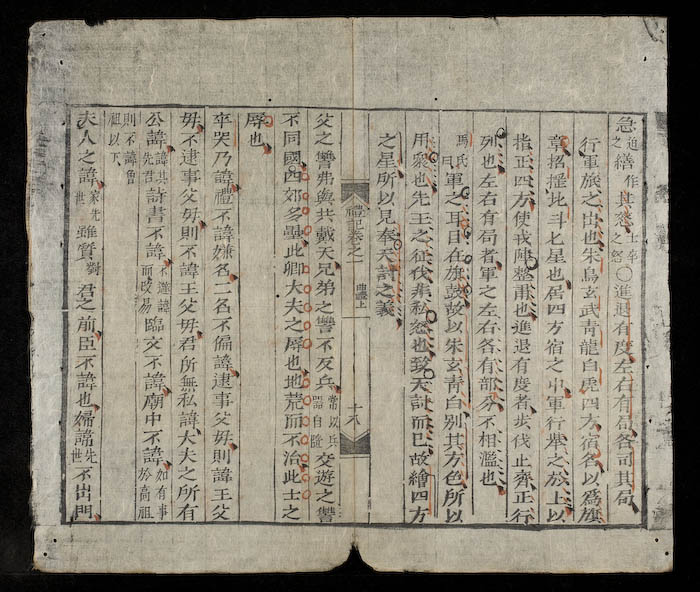 急迫之繕作其怒士卒之怒○進退有度左右有局各司其局
行軍旅之出也朱鳥玄武青龍白虎四方宿名以爲旗
章招搖北斗七星也居四方宿之中軍行舉之於上以
指正四方使戎陣整肅也進退有度者步伐止齊正行
列也左右有局者軍之左右各有部分不相濫也
馬氏曰軍之耳目在旗鼓故以朱玄青白別其方色所以
用衆也先王之征伐非私忿也致天討而已故繪四方
之星所以見奉天討之義
禮記卷之一 曲禮上 十八
父之讐弗與共戴天兄弟之讐不反兵常以兵器自隨交遊之讐
不同國四郊多壘此卿大夫之辱也地荒而不治此士之
辱也
卒哭乃諱禮不諱嫌名二名不偏諱逮事父母則諱王父
母不逮事父母則不諱王父母君所無私諱大夫之所有
公諱諱其先君詩書不諱不避諱而改易臨文不諱廟中不諱如有事於高祖
則不諱曾祖以下
夫人之諱家先世雖質對君之前臣不諱也婦諱先世不出門